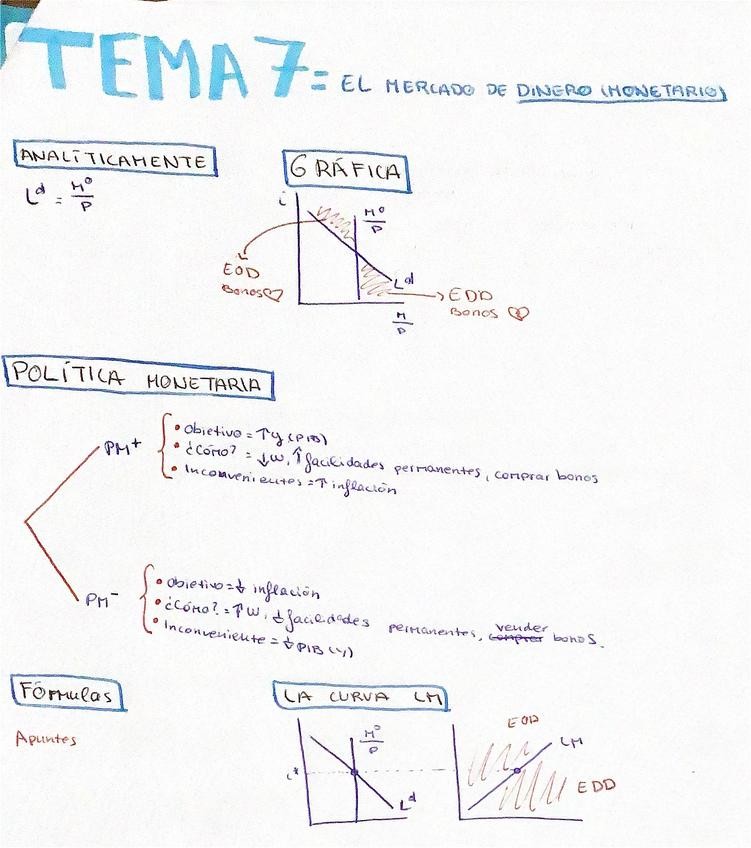 TEMA 7 = EL MERCADO DE DINERO (MONETARIO)
ANALÍTICAMENTE
L^d = M^o/P
GRÁFICA
i
M^o/P
EOD
Bonos ♡
L^d
EDD
Bonos 💔
M/P
POLÍTICA MONETARIA
PM+
• Objetivo = ↑y (PIB)
• ¿Cómo? = ↓w, ↑facilidades permanentes, comprar bonos
• Inconvenientes = ↑ inflación
PM-
• Objetivo = ↓ inflación
• ¿Cómo? = ↑w, ↓facilidades permanentes, vender bonos.
• Inconveniente = ↓PIB (y)
Fórmulas
Apuntes
LA CURVA LM
M^o/P
i*
L^d
EOD
LM
EDD